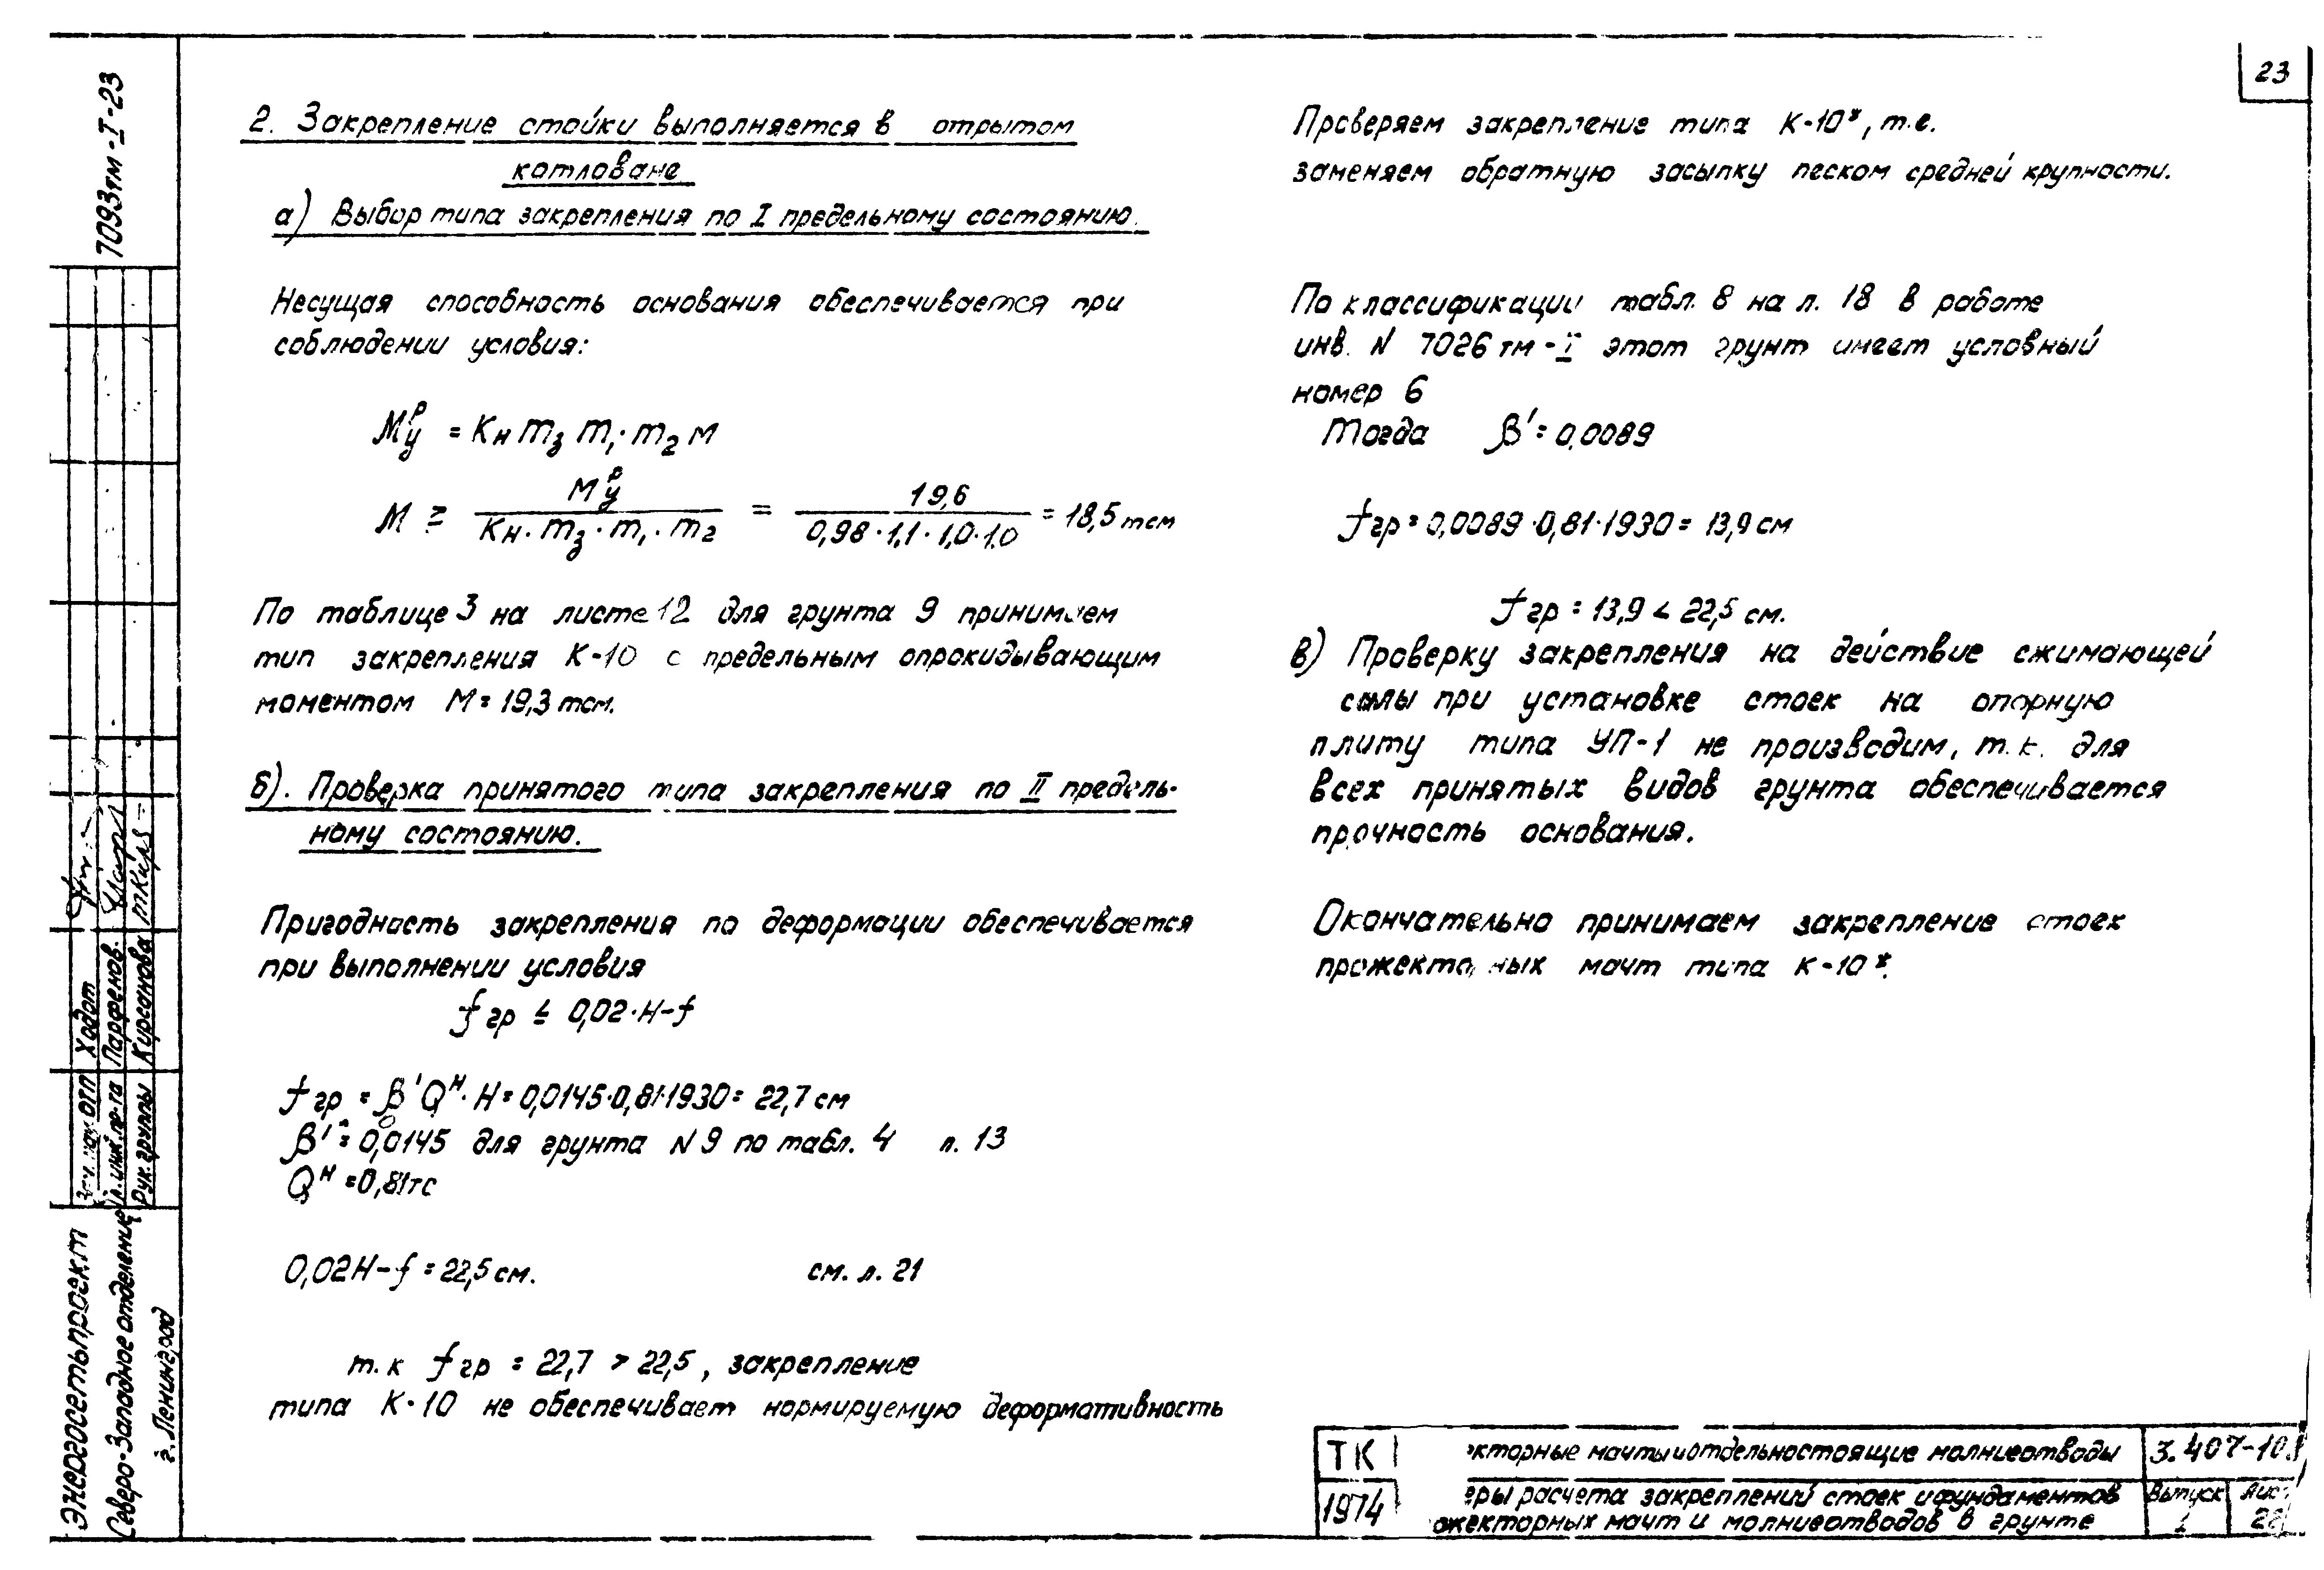 23
2. Закрепление стойки выполняется в отрытом
котловане
а) Выбор типа закрепления по I предельному состоянию.
Несущая способность основания обеспечивается при
соблюдении условия:
Mᵖу = Kн m₃ m₁·m₂ м
M ≥ Mᵖу / Kн·m₃·m₁·m₂ = 19,6 / 0,98·1,1·1,0·1,0 = 18,5 тсм
По таблице 3 на листе 12 для грунта 9 принимаем
тип закрепления К-10 с предельным опрокидывающим
моментом М = 19,3 тсм.
б). Проверка принятого типа закрепления по II предель-
ному состоянию.
Пригодность закрепления по деформации обеспечивается
при выполнении условия
f гр ≤ 0,02·H-f
f гр = β' Qᴴ·H = 0,0145·0,81·1930 = 22,7 см
β' = 0,0145 для грунта N 9 по табл. 4 л. 13
Qᴴ = 0,81тс
0,02H-f = 22,5 см. см. л. 21
т.к f гр = 22,7 > 22,5, закрепление
типа К-10 не обеспечивает нормируемую деформативность
Проверяем закрепление типа К-10*, т.е.
заменяем обратную засыпку песком средней крупности.
По классификации табл. 8 на л. 18 в работе
инв. N 7026 тм-I этот грунт имеет условный
номер 6
Тогда β' = 0,0089
f гр = 0,0089·0,81·1930 = 13,9 см
f гр = 13,9 < 22,5 см.
в) Проверку закрепления на действие сжимающей
силы при установке стоек на опорную
плиту типа УП-1 не производим, т.к. для
всех принятых видов грунта обеспечивается
прочность основания.
Окончательно принимаем закрепление стоек
прожекторных мачт типа К-10*.
7093тм-I-23
Ходот
Парфенов
Рук. группы Кирсанова
Энергосетьпроект
Северо-Западное отделение
г. Ленинград
ТК
1974
екторные мачты и отдельностоящие молниеотводы
еры расчета закреплений стоек и фундаментов
ожекторных мачт и молниеотводов в грунте
3.407-10
Выпуск
I
Лист
22